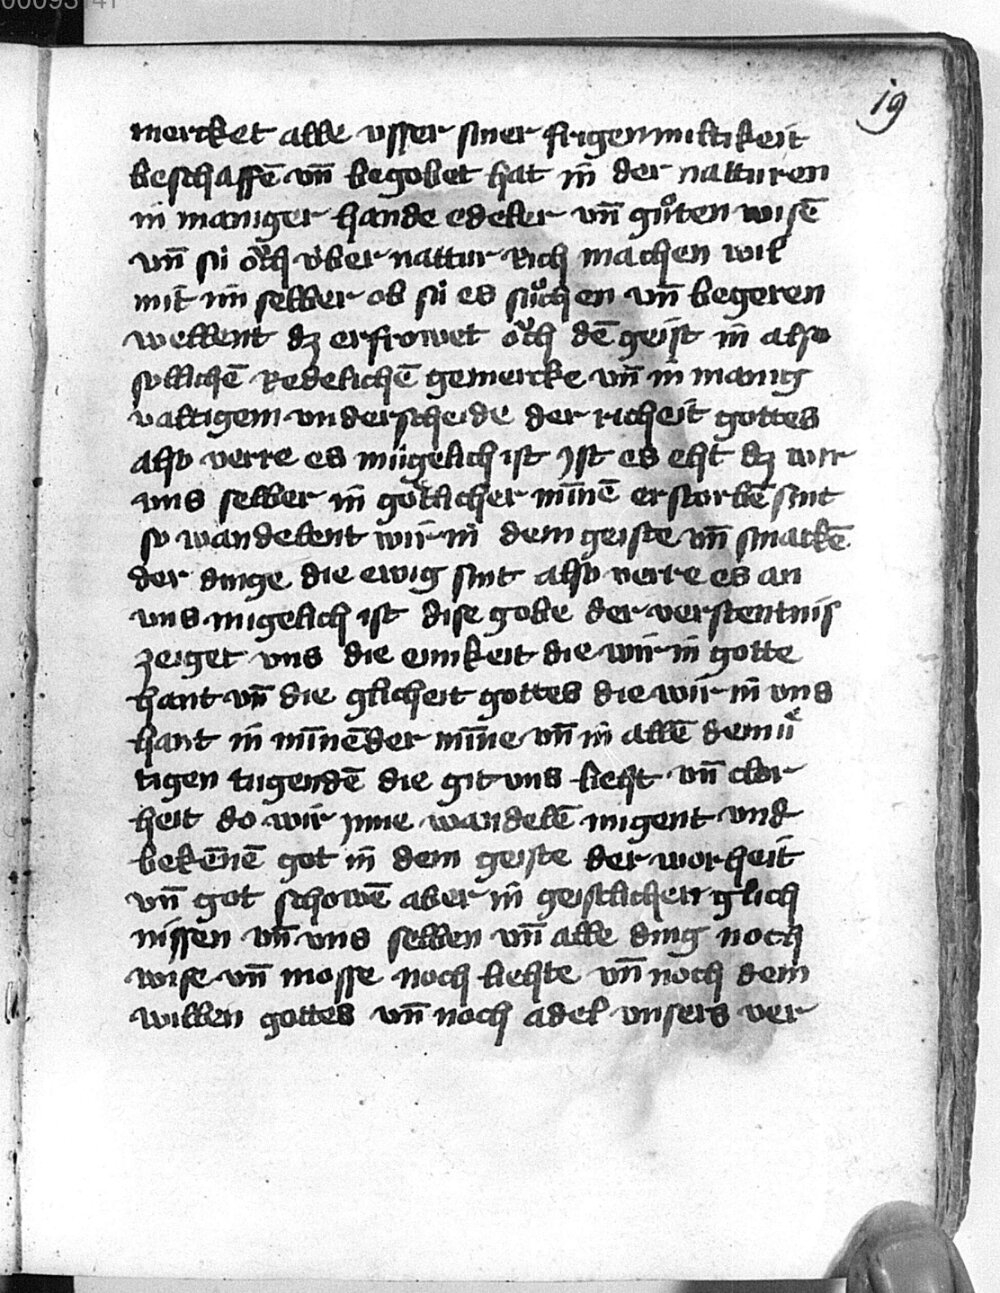 19
mercket alle vsser siner frigen miltikeit
beschaffē vn̄ begobet hat in der natturen
in maniger hande edeler vn̄ gůten wisē
vn̄ si ǒch v́ber nattur rich machen wil
mit im selber ob sú es sůchen vn̄ begeren
wellent dz erfrowet ǒch dē geist in also
sollichē redelichē gemercke vn̄ in manig
valtigem vnderscheide der richeit gottes
also verre es múgelich ist jst es eht dz wir
vns selber in gotlicher mīnē erstorbē sint
so wandelent wir in dem geiste vn̄ smackē
der dinge die ewig sint also verre es an
vns migelich ist dise gobe der verstentnis
zeiget vns die einikeit die wir in gotte
hant vn̄ die glicheit gottes die wir in vns
hant in mīnēder mīne vn̄ in allē demuͤ
tigen tugendē die git vns lieht vn̄ clor
heit do wir jnne wandelē migent vnd
bekēnē got in dem geiste der worheit
vn̄ got schowē aber in geistlichen glich
nissen vn̄ vns selben vn̄ alle ding noch
wise vn̄ mosse noch liehte vn̄ noch dem
willen gottes vn̄ noch adel vnsers ver